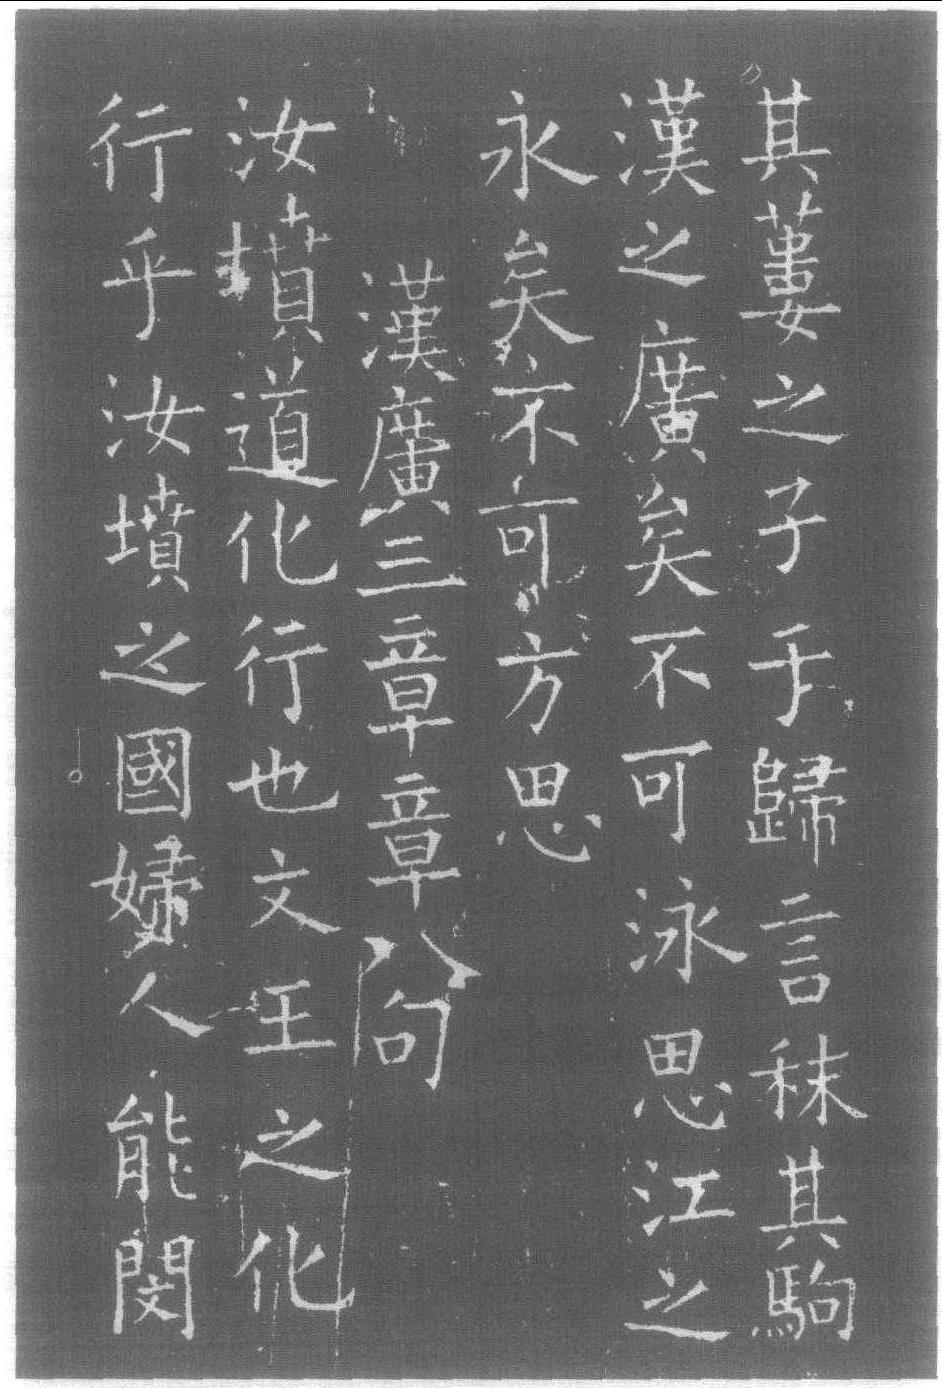 其蔞之子于歸言秣其駒
漢之廣矣不可泳思江之
永矣不可方思
漢廣三章章八句
汝墳道化行也文王之化
行乎汝墳之國婦人能閔